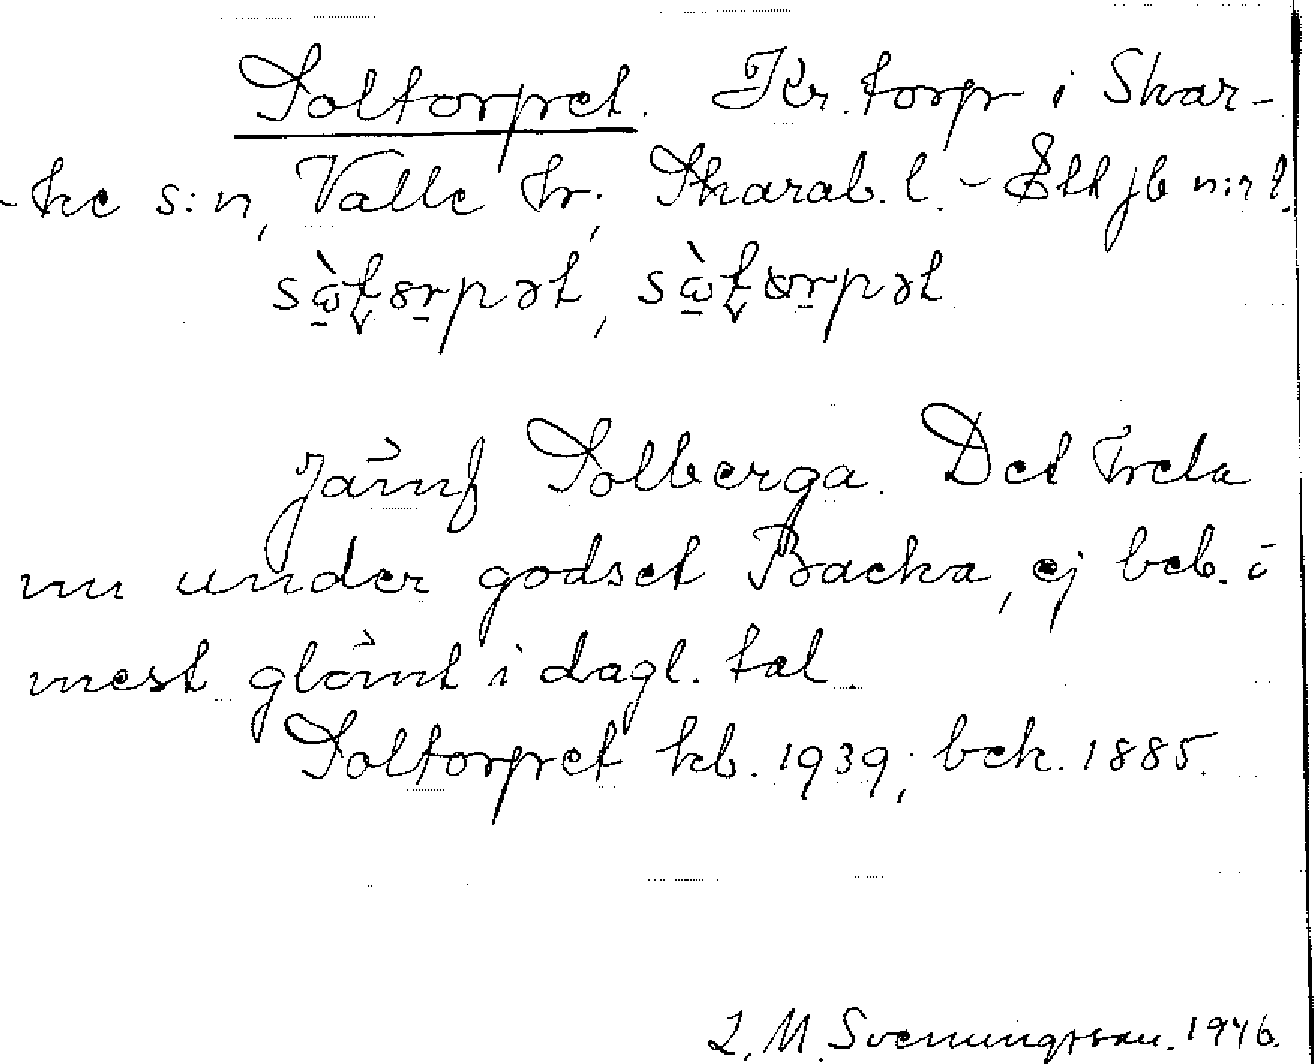 Soltorpet. Kr. torp i Skar-
ke s:n, Valle hr; Skarab. l. - Ett jb n:r 1.
Jämf Solberga. Det hela
nu under godset Backa, ej beb. o
mest glömt i dagl. tal
Soltorpet kb. 1939; bek. 1885.
L. M. Svenungsson. 1946.